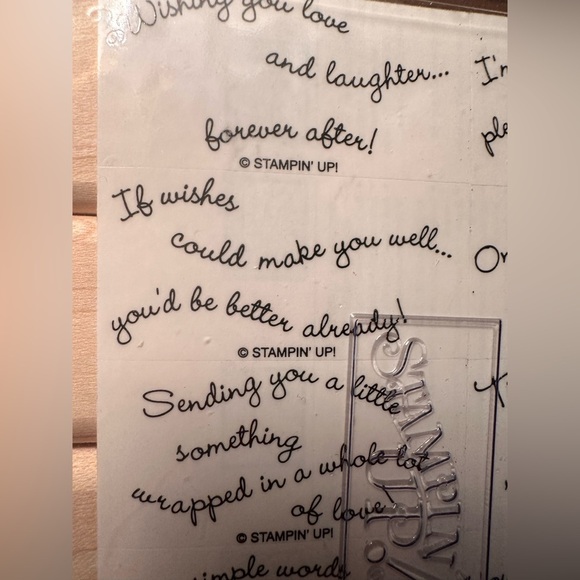 Wishing you love
and laughter...
forever after!
© STAMPIN' UP!
If wishes
could make you well...
you'd be better already!
© STAMPIN' UP!
Sending you a little
something
wrapped in a whole lot
of love
© STAMPIN' UP!
simple words
I'm
STAMPIN' UP!